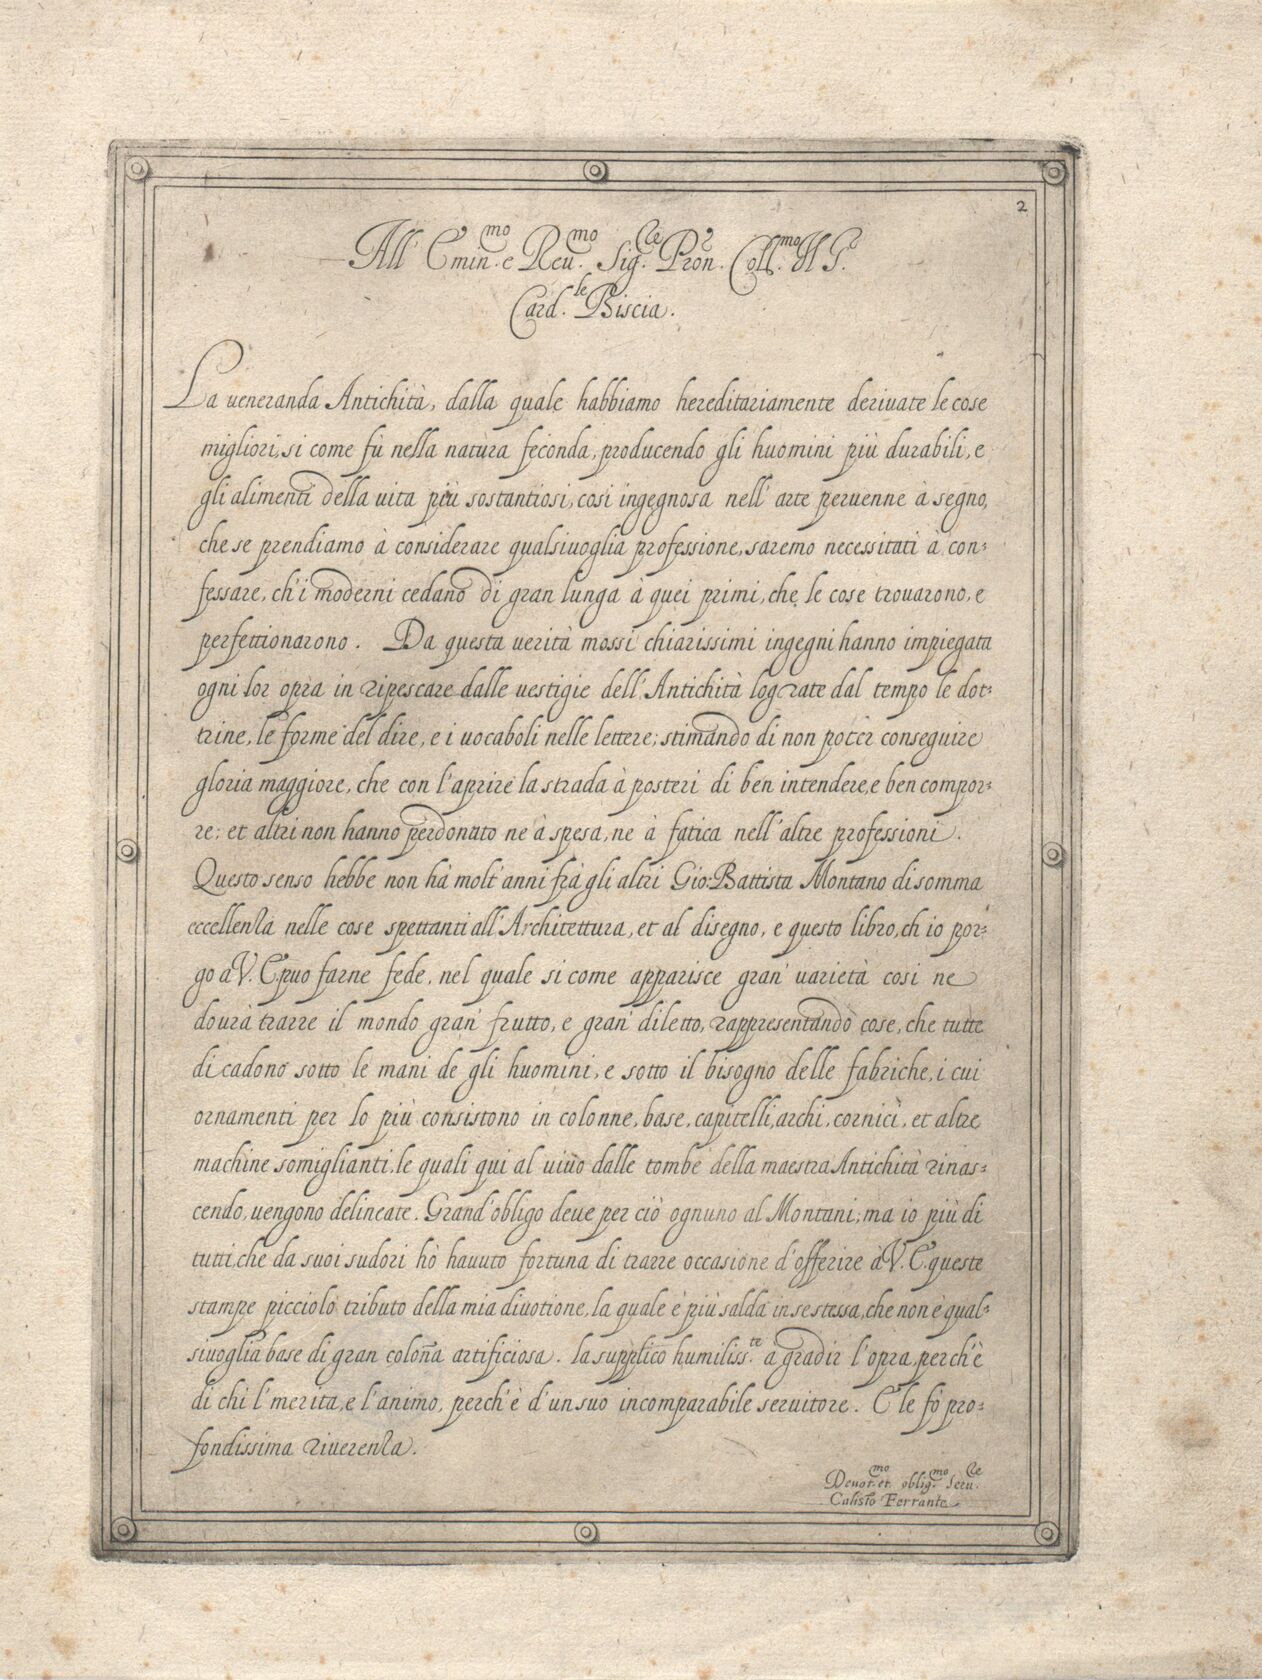 2
All' Emin.mo e Reu.mo Sig.re Pron. Coll.mo Il S.r
Card.le Biscia.
La ueneranda Antichità, dalla quale habbiamo hereditariamente deriuate le cose
migliori, si come fù nella natura feconda, producendo gli huomini più durabili, e
gli alimenti della uita più sostantiosi, cosi ingegnosa nell' arte peruenne à segno,
che se prendiamo à considerare qualsiuoglia professione, saremo necessitati à con=
fessare, ch'i moderni cedano di gran lunga à quei primi, che le cose trouarono, e
perfettionarono. Da questa uerità mossi chiarissimi ingegni hanno impiegata
ogni lor opra in ripescare dalle uestigie dell' Antichità lograte dal tempo le dot=
trine, le forme del dire, e i uocaboli nelle lettere; stimando di non poter conseguire
gloria maggiore, che con l'aprire la strada à posteri di ben intendere, e ben compor=
re; et altri non hanno perdonato ne à spesa, ne à fatica nell' altre professioni.
Questo senso hebbe non hà molt' anni frà gli altri Gio: Battista Montano di somma
eccellenza nelle cose spettanti all' Architettura, et al disegno, e questo libro, ch io por=
go à V. E. puo farne fede, nel quale si come apparisce gran' uarietà cosi ne
dourà trarre il mondo gran' frutto, e gran' diletto, rappresentando cose, che tutte
di cadono sotto le mani de gli huomini, e sotto il bisogno delle fabriche, i cui
ornamenti per lo più consistono in colonne, base, capitelli, archi, cornici, et altre
machine somiglianti, le quali qui al uiuo dalle tombe della maestra Antichità rinas=
cendo, uengono delineate. Grand' obligo deue per ciò ognuno al Montani; ma io più di
tutti, che da suoi sudori hò hauuto fortuna di trarre occasione d'offerire à V. E. queste
stampe picciolo tributo della mia diuotione, la quale è più salda in se stessa, che non è qual=
siuoglia base di gran coloña artificiosa. la supplico humiliss.te a gradir l'opra, perch'è
di chi l'merita, e l'animo, perch'è d'un suo incomparabile seruitore. E le fò pro=
fondissima riuerenza.
Deuot.mo et oblig.mo Seru.re
Calisto Ferrante